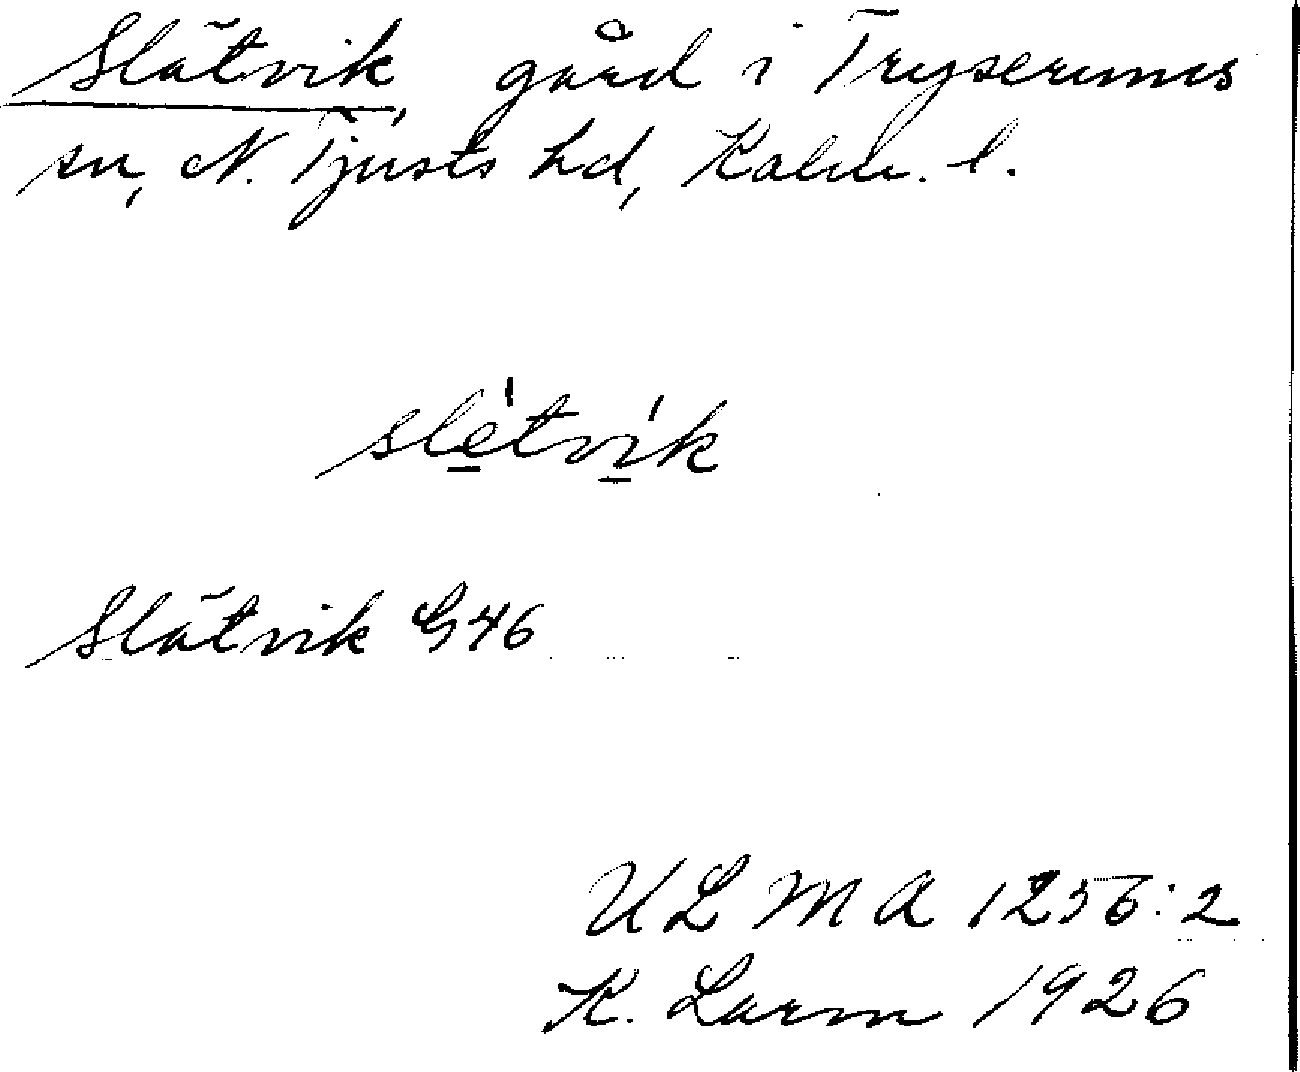 Slätvik, gård i Tryserums
sn, N. Tjusts hd, Kalm. l.
slètvík
Slätvik G46
ULMA 1256:2
K. Larm 1926